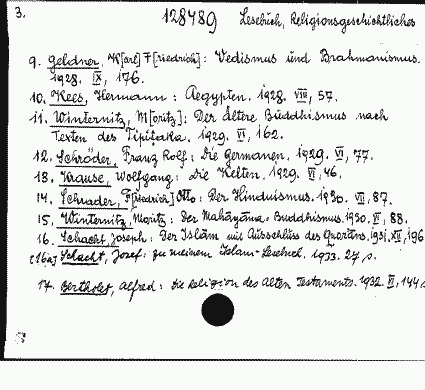 3. 128489 Lesebuch, Religionsgeschichtliches
9. Geldner, K[arl] F[riedrich]: Vedismus und Brahmanismus.
1928. IX, 176.
10. Kees, Hermann: Aegypten. 1928. VIII, 57.
11. Winternitz, M[oritz]: Der ältere Buddhismus nach
Texten des Tipiṭaka. 1929. VI, 162.
12. Schröder, Franz Rolf: Die Germanen. 1929. VI, 77.
13. Krause, Wolfgang: Die Kelten. 1929. VI, 46.
14. Schrader, F[riedrich] Otto: Der Hinduismus. 1930. VII, 87.
15. Winternitz, Moritz: Der Mahāyāna-Buddhismus. 1930. VI, 88.
16. Schacht, Joseph: Der Islām mit Ausschluss des Qorʾāns. 1931. XII, 196
[16a] Schacht, Josef: zu meinem Islam-Lesebuch. 1933. 27 S.
17. Bertholet, Alfred: Die Religion des Alten Testaments. 1932. VI, 144 S.